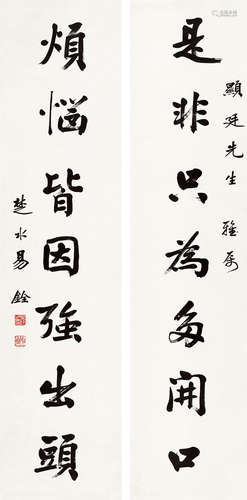 是非只為多開口
顯廷先生 雅屬
煩惱皆因強出頭
楚水易銓